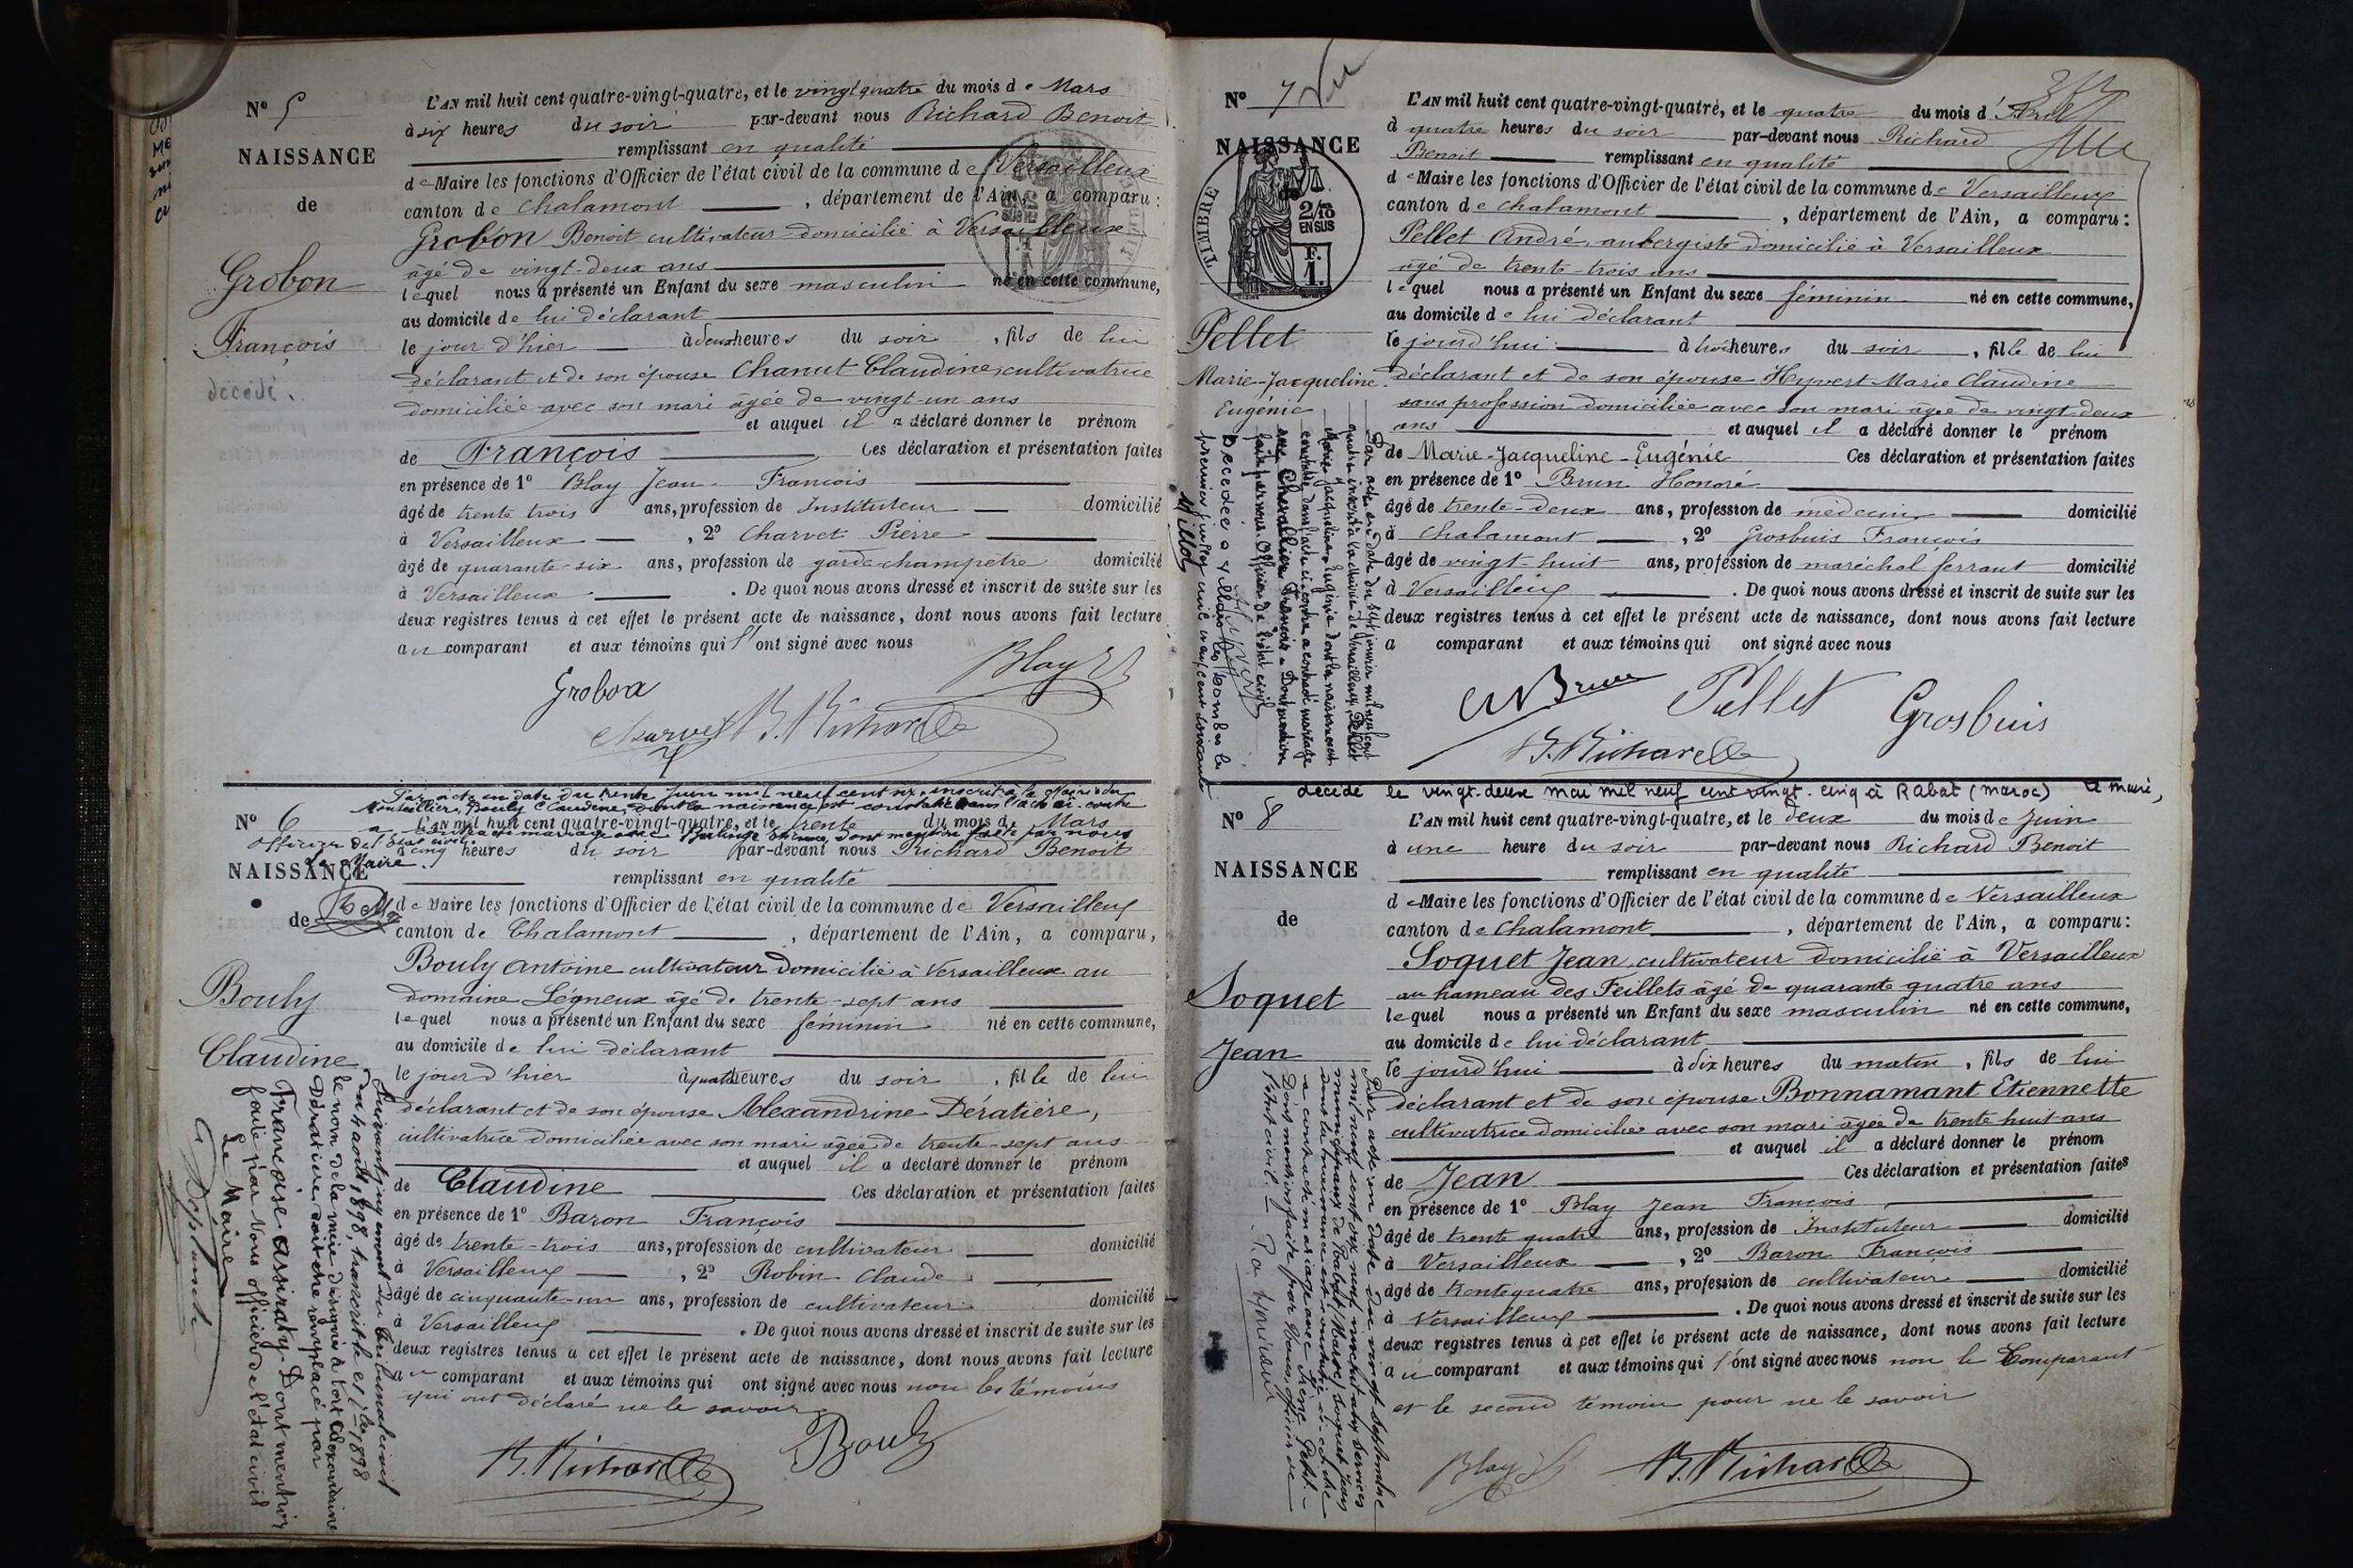 N° 5
NAISSANCE
de
Grobon
François
décédé.
L'AN mil huit cent quatre-vingt-quatre, et le vingt quatre du mois de Mars
à six heures du soir par-devant nous Richard Benoit
remplissant en qualité
de Maire les fonctions d'Officier de l'état civil de la commune de Versailleux
canton de Chalamont, département de l'Ain, a comparu :
Grobon Benoit cultivateur domicilié à Versailleux
âgé de vingt-deux ans
lequel nous a présenté un Enfant du sexe masculin né en cette commune,
au domicile de lui déclarant
le jour d'hier à deux heures du soir, fils de lui
déclarant et de son épouse Chanut Claudine, cultivatrice
domiciliée avec son mari âgée de vingt-un ans
et auquel il a déclaré donner le prénom
de François Ces déclaration et présentation faites
en présence de 1° Blay Jean-François
âgé de trente trois ans, profession de Instituteur domicilié
à Versailleux, 2° Charvet Pierre
âgé de quarante-six ans, profession de garde-champêtre domicilié
à Versailleux. De quoi nous avons dressé et inscrit de suite sur les
deux registres tenus à cet effet le présent acte de naissance, dont nous avons fait lecture
au comparant et aux témoins qui l'ont signé avec nous
Blay
Grobon
Charvet B. Richard
Par acte en date du trente Juin mil neuf cent six inscrit à la Mairie de
Montellier, Bouly Claudine, dont la naissance est constatée dans l'acte ci-contre
a contracté mariage avec dont mention faite par nous
officier de l'état civil.
Le Maire.
N° 6
NAISSANCE
de
Bouly
Claudine
L'AN mil huit cent quatre-vingt-quatre, et le trente du mois de Mars
à cinq heures du soir par-devant nous Richard Benoit
remplissant en qualité
de Maire les fonctions d'Officier de l'état civil de la commune de Versailleux
canton de Chalamont, département de l'Ain, a comparu,
Bouly Antoine cultivateur domicilié à Versailleux au
domaine Légneux âgé de trente-sept ans
lequel nous a présenté un Enfant du sexe féminin né en cette commune,
au domicile de lui déclarant
le jour d'hier à quatre heures du soir, fille de lui
déclarant et de son épouse Alexandrine Dératière,
cultivatrice domiciliée avec son mari âgée de trente-sept ans
et auquel il a déclaré donner le prénom
de Claudine Ces déclaration et présentation faites
en présence de 1° Baron François
âgé de trente-trois ans, profession de cultivateur domicilié
à Versailleux, 2° Robin Claude
âgé de cinquante-un ans, profession de cultivateur domicilié
à Versailleux. De quoi nous avons dressé et inscrit de suite sur les
deux registres tenus à cet effet le présent acte de naissance, dont nous avons fait lecture
au comparant et aux témoins qui ont signé avec nous non les témoins
qui ont déclaré ne le savoir
B. Richard Bouly
Suivant jugement du tribunal civil
du 4 août 1898, transcrit le 1898
le nom de la mère désignée à tort Alexandrine
Dératière doit être remplacé par
Françoise Dont mention
faite par Nous officier de l'état civil
Le Maire
N° 7 Vu
NAISSANCE
TIMBRE
2/10
EN SUS
F.
1.
Pellet
Marie-Jacqueline
Eugénie
L'AN mil huit cent quatre-vingt-quatre, et le quatre du mois d'Avril
à quatre heures du soir par-devant nous Richard
Benoit remplissant en qualité
de Maire les fonctions d'Officier de l'état civil de la commune de Versailleux
canton de Chalamont, département de l'Ain, a comparu :
Pellet André, aubergiste domicilié à Versailleux
âgé de trente-trois ans
lequel nous a présenté un Enfant du sexe féminin né en cette commune,
au domicile de lui déclarant
le jourd'hui à trois heures du soir, fille de lui
déclarant et de son épouse Hyvert Marie Claudine
sans profession domiciliée avec son mari âgée de vingt-deux
ans et auquel il a déclaré donner le prénom
de Marie-Jacqueline-Eugénie Ces déclaration et présentation faites
en présence de 1° Brun Honoré
âgé de trente-deux ans, profession de médecin domicilié
à Chalamont, 2° Grosbuis François
âgé de vingt-huit ans, profession de maréchal ferrant domicilié
à Versailleux. De quoi nous avons dressé et inscrit de suite sur les
deux registres tenus à cet effet le présent acte de naissance, dont nous avons fait lecture
a comparant et aux témoins qui ont signé avec nous
Brun Pellet Grosbuis
B. Richard
Par acte en date du sept janvier mil neuf cent
inscrit à la Mairie de Versailleux, Pellet
Marie Jacqueline Eugénie dont la naissance est
constatée dans l'acte ci-contre a contracté mariage
avec Chevallier François. Dont mention
faite par nous Officier de l'état civil
Décédée à Villars les Dombes le
premier juillet mil neuf cent soixante
décédé le vingt-deux mai mil neuf cent vingt-cinq à Rabat (Maroc) Le maire,
N° 8
NAISSANCE
de
Soquet
Jean
L'AN mil huit cent quatre-vingt-quatre, et le deux du mois de Juin
à une heure du soir par-devant nous Richard Benoit
remplissant en qualité
de Maire les fonctions d'Officier de l'état civil de la commune de Versailleux
canton de Chalamont, département de l'Ain, a comparu :
Soquet Jean, cultivateur domicilié à Versailleux
au hameau des Feillets âgé de quarante quatre ans
lequel nous a présenté un Enfant du sexe masculin né en cette commune,
au domicile de lui déclarant
le jourd'hui à dix heures du matin, fils de lui
déclarant et de son épouse Bonnamant Etiennette
cultivatrice domiciliée avec son mari âgée de trente huit ans
et auquel il a déclaré donner le prénom
de Jean Ces déclaration et présentation faites
en présence de 1° Blay Jean François
âgé de trente quatre ans, profession de Instituteur domicilié
à Versailleux, 2° Baron François
âgé de trente quatre ans, profession de cultivateur domicilié
à Versailleux. De quoi nous avons dressé et inscrit de suite sur les
deux registres tenus à cet effet le présent acte de naissance, dont nous avons fait lecture
au comparant et aux témoins qui l'ont signé avec nous non le Comparant
et le second témoin pour ne le savoir
Blay B. Richard
Par acte en date du vingt septembre
mil neuf cent dix neuf aux services
municipaux de Rabat (Maroc) Soquet Jean
dont la naissance est constatée ci-contre
a contracté mariage avec
Dont mention faite par Nous, officier de
l'état civil.